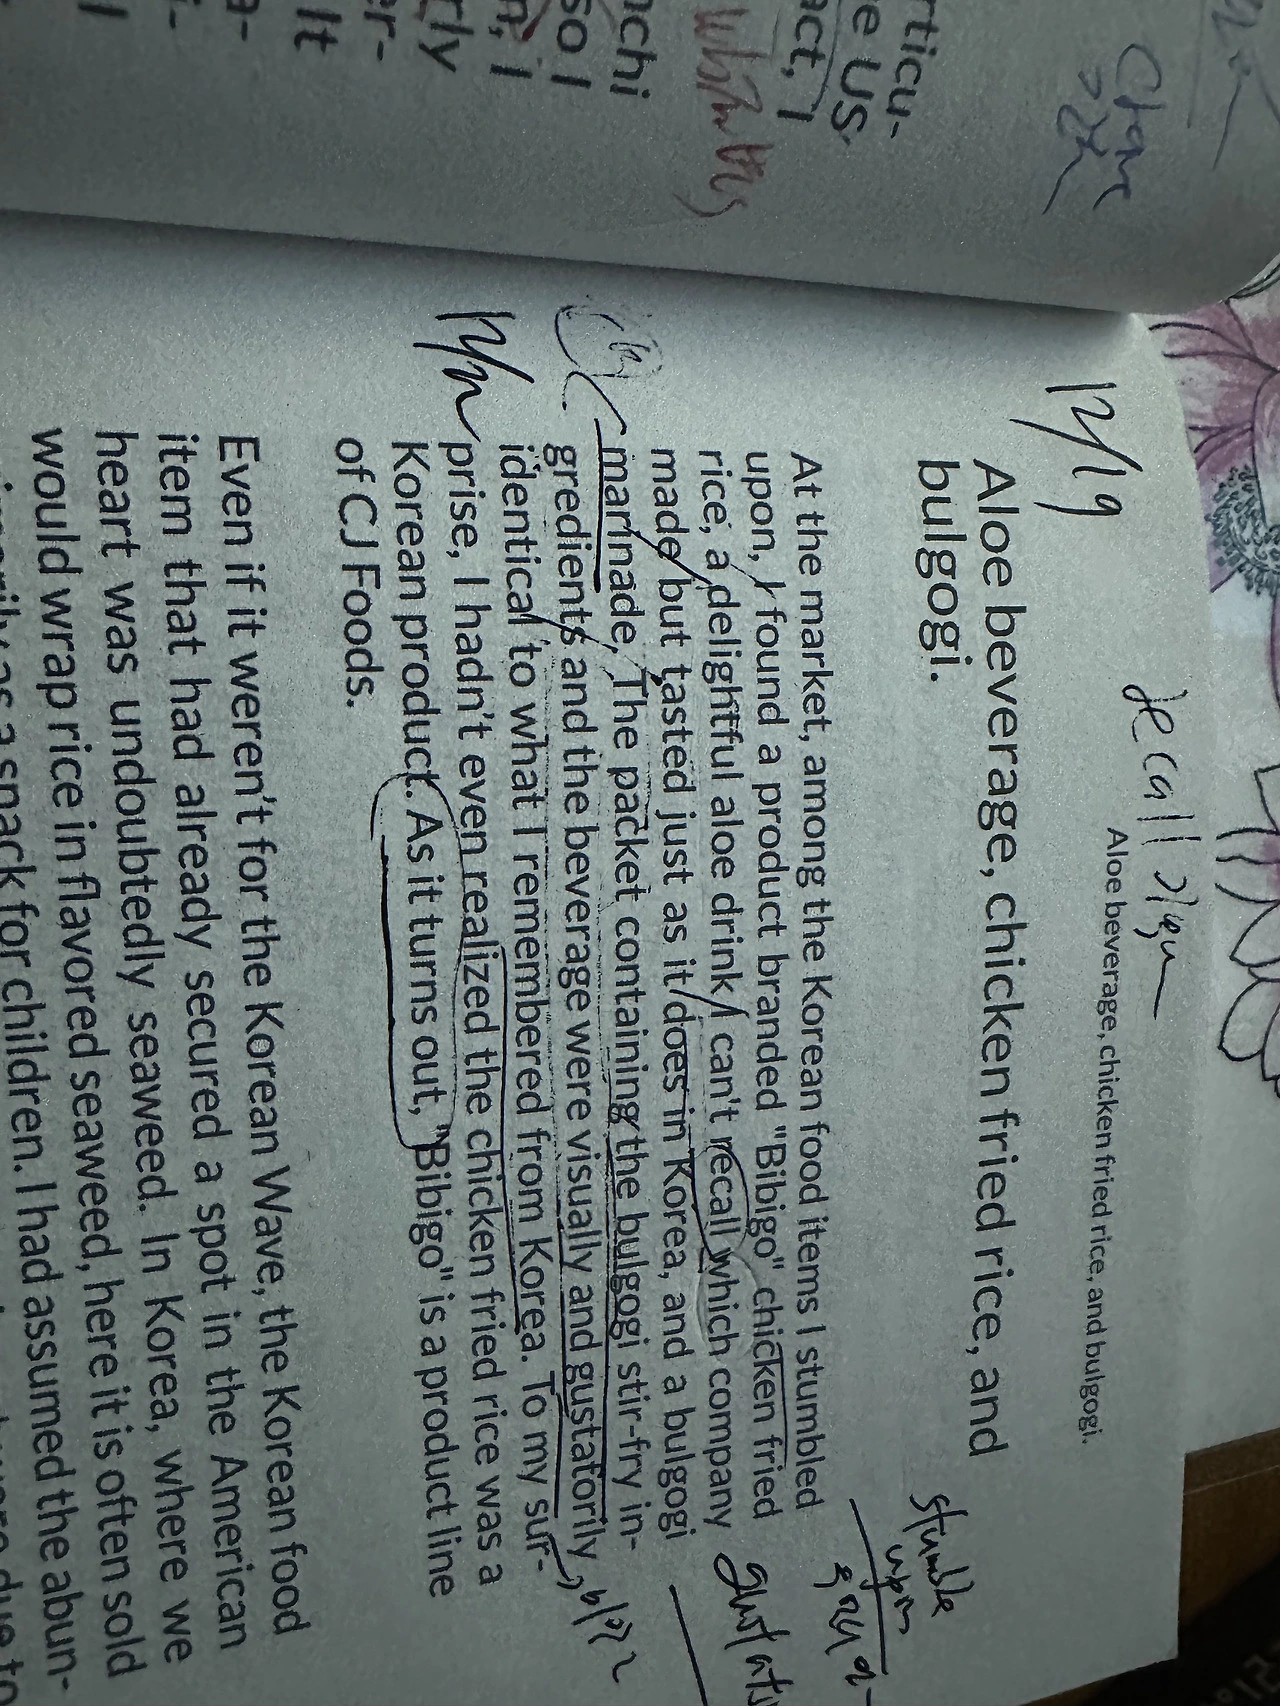 rticu-
e US.
act, I
nchi
so I
n, I
rly
er-
It
a-
i-
I
Aloe beverage, chicken fried rice, and bulgogi.
12/19
recall
Aloe beverage, chicken fried rice, and
bulgogi.
stumble
upon
At the market, among the Korean food items I stumbled
upon, I found a product branded "Bibigo" chicken fried
rice, a delightful aloe drink I can't recall which company
made but tasted just as it does in Korea, and a bulgogi
marinade. The packet containing the bulgogi stir-fry in-
gredients and the beverage were visually and gustatorily
identical to what I remembered from Korea. To my sur-
prise, I hadn't even realized the chicken fried rice was a
Korean product. As it turns out, "Bibigo" is a product line
of CJ Foods.
Even if it weren't for the Korean Wave, the Korean food
item that had already secured a spot in the American
heart was undoubtedly seaweed. In Korea, where we
would wrap rice in flavored seaweed, here it is often sold
as a snack for children. I had assumed the abun-
due to